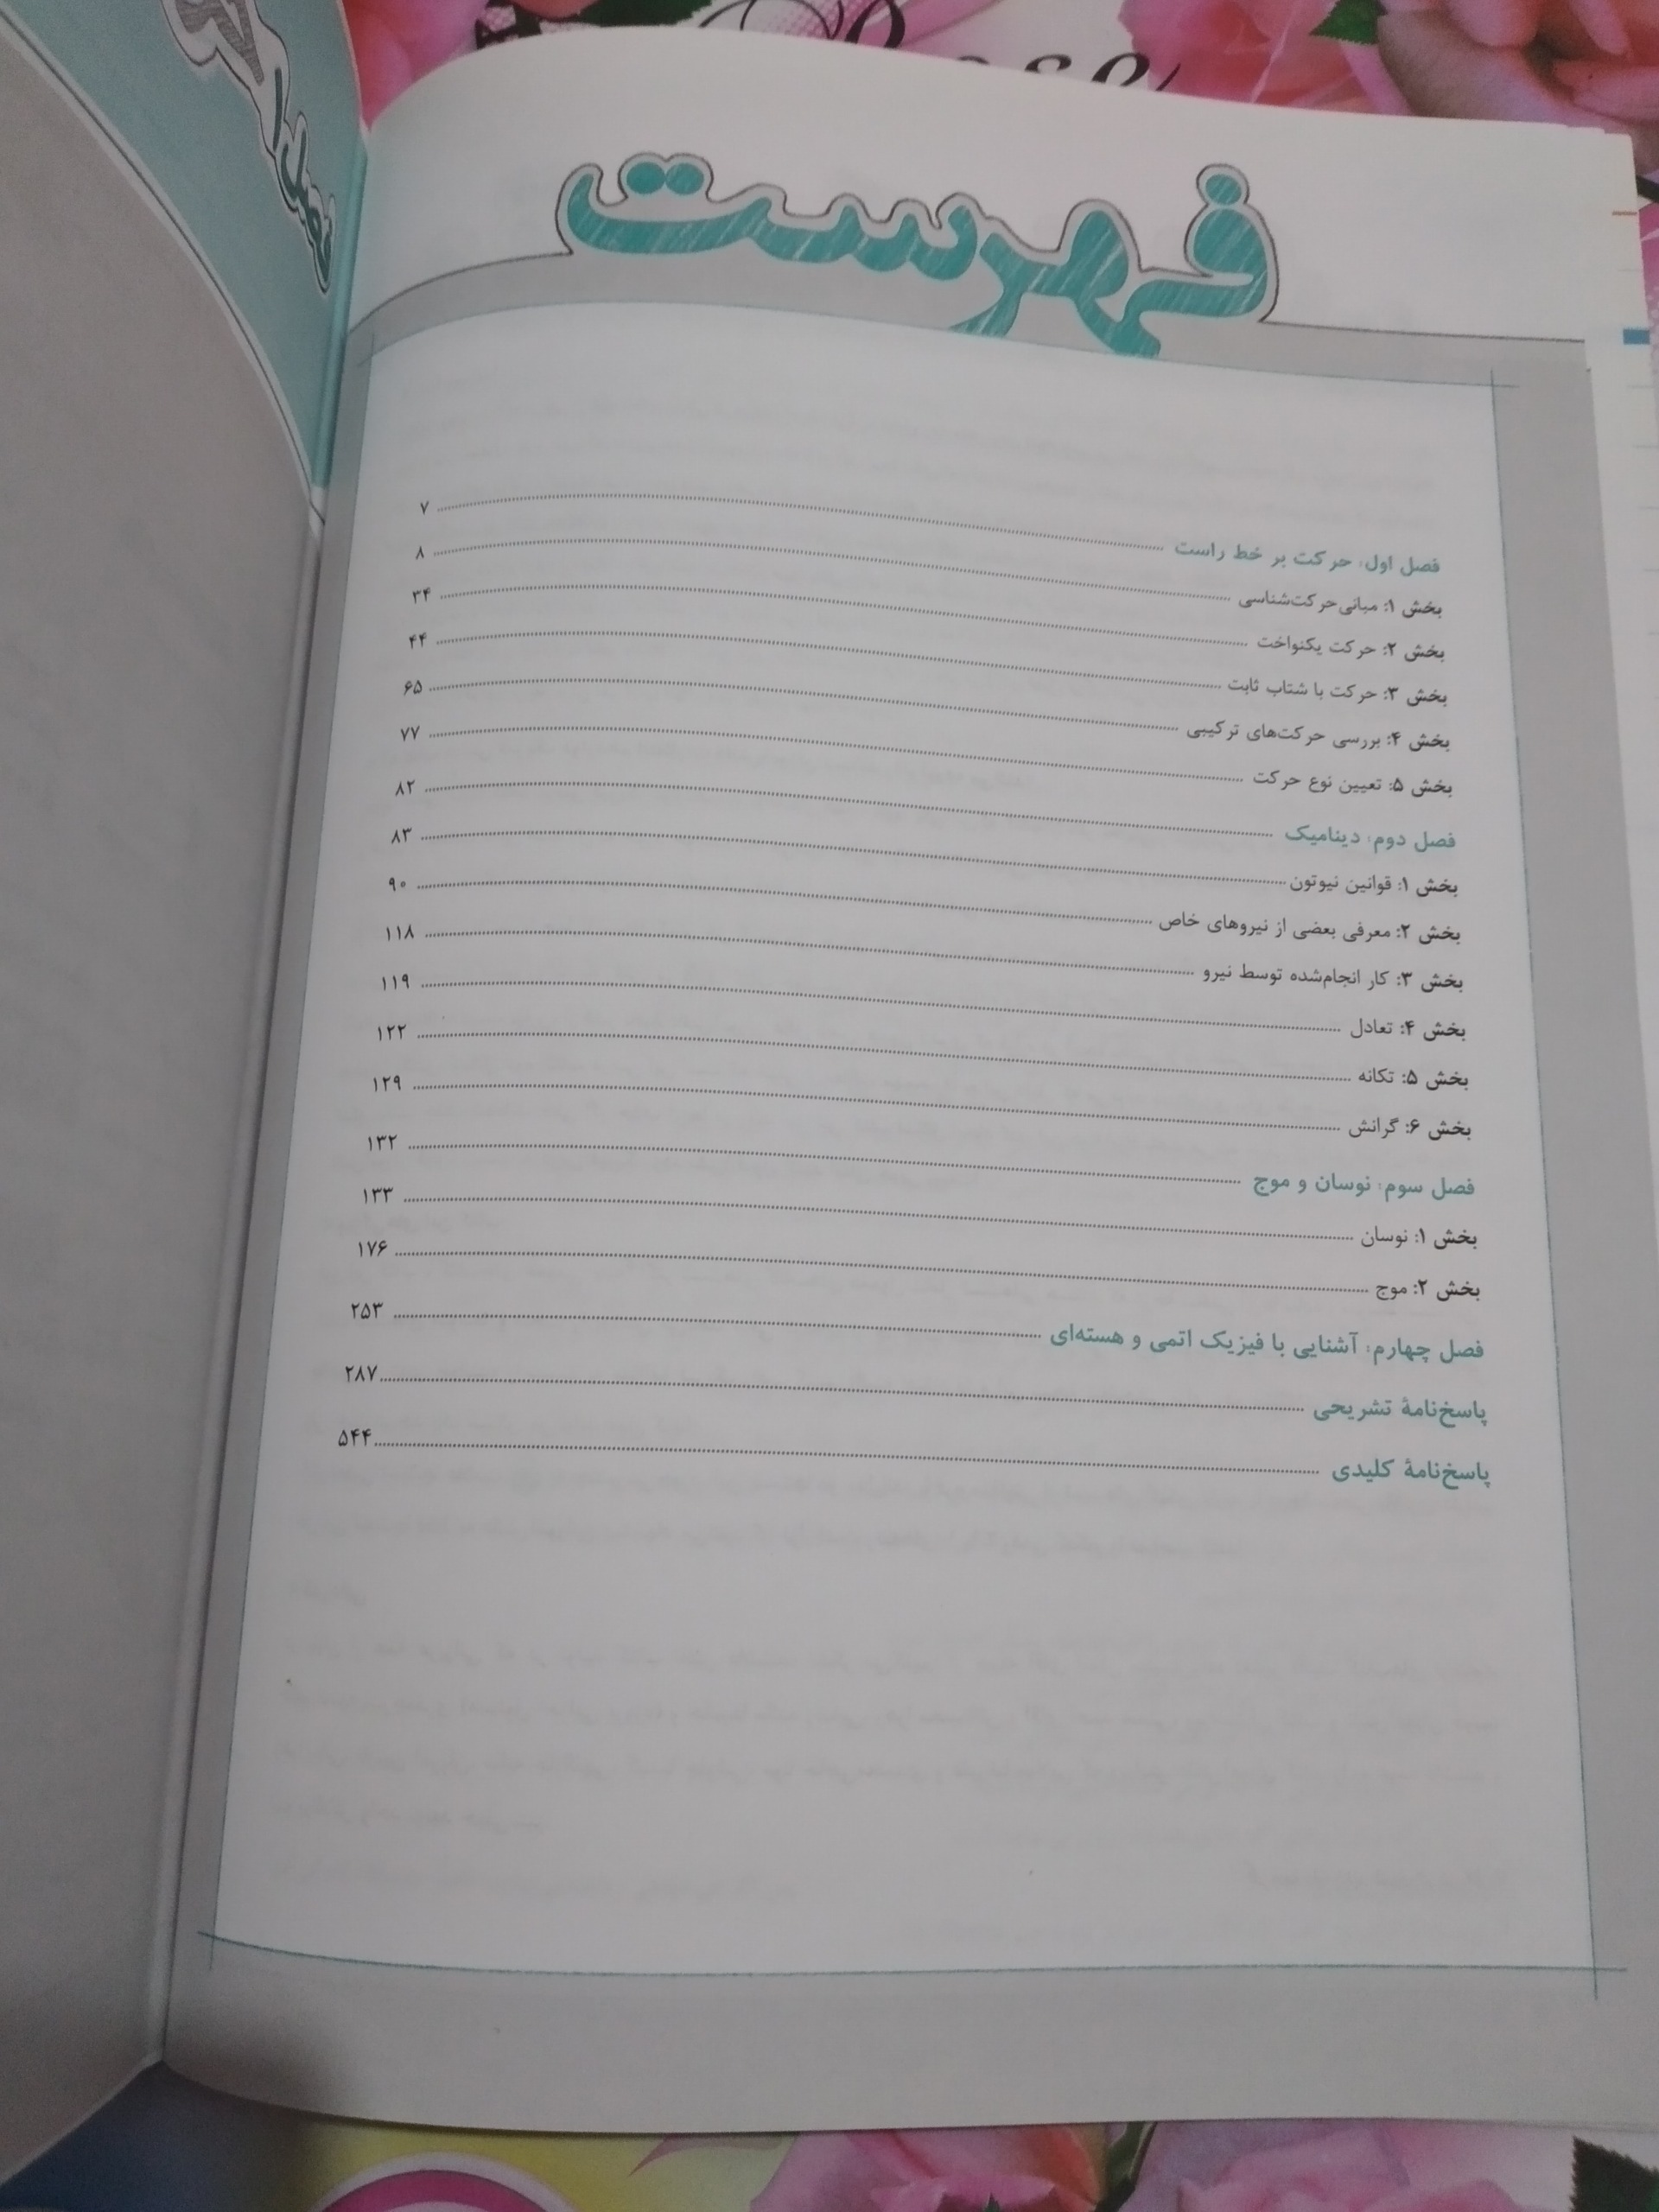 فهرست
فصل اول: حرکت بر خط راست ۷
بخش ۱: مبانی حرکت‌شناسی ۸
بخش ۲: حرکت یکنواخت ۳۴
بخش ۳: حرکت با شتاب ثابت ۴۴
بخش ۴: بررسی حرکت‌های ترکیبی ۶۵
بخش ۵: تعیین نوع حرکت ۷۷
فصل دوم: دینامیک ۸۲
بخش ۱: قوانین نیوتون ۸۳
بخش ۲: معرفی بعضی از نیروهای خاص ۹۰
بخش ۳: کار انجام‌شده توسط نیرو ۱۱۸
بخش ۴: تعادل ۱۱۹
بخش ۵: تکانه ۱۲۲
بخش ۶: گرانش ۱۲۹
فصل سوم: نوسان و موج ۱۳۲
بخش ۱: نوسان ۱۳۳
بخش ۲: موج ۱۷۶
فصل چهارم: آشنایی با فیزیک اتمی و هسته‌ای ۲۵۳
پاسخ‌نامهٔ تشریحی ۲۸۷
پاسخ‌نامهٔ کلیدی ۵۴۴